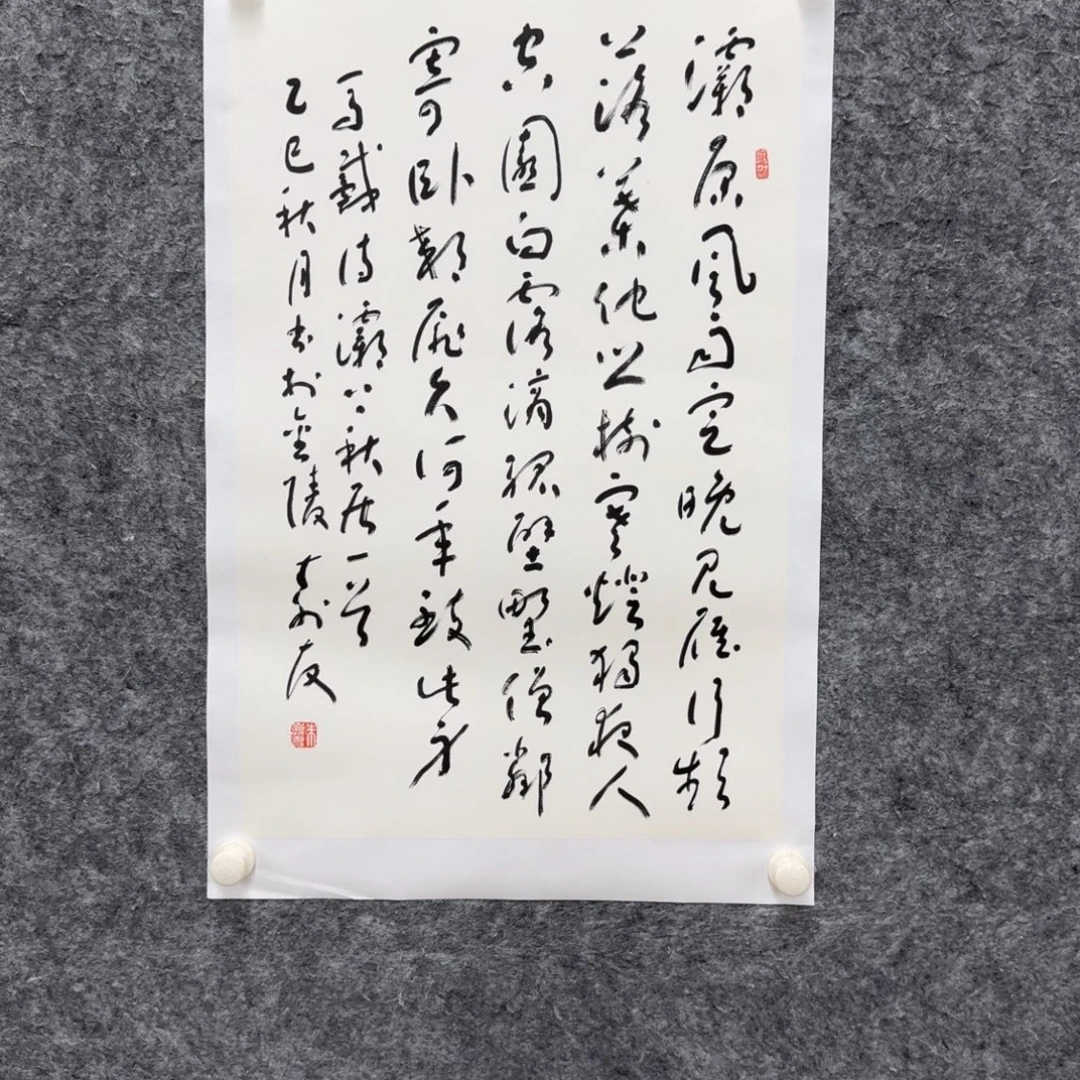 灞原風雨定晚見雁行頻
落葉他鄉樹寒燈獨夜人
空園白露滴孤壁野僧鄰
寄卧郊扉久何年致此身
馬戴詩灞上秋居一首
乙巳秋月書於金陵壽友